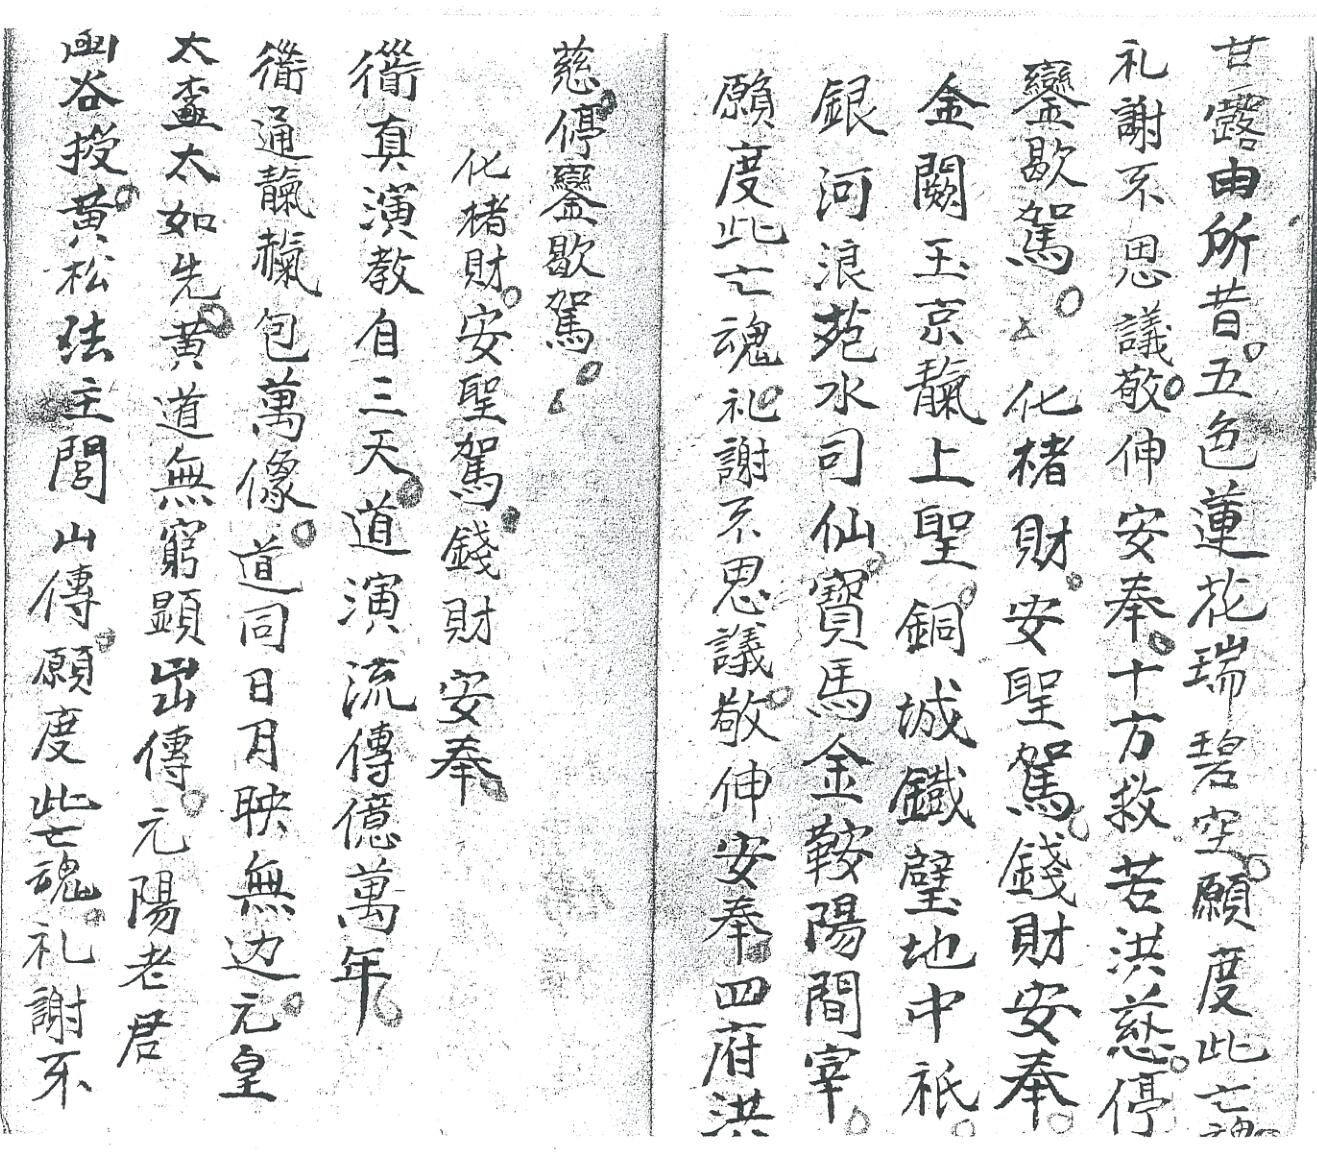 甘露由所昔五色蓮花瑞碧空願度此亡魂
礼謝不思議敬伸安奉十方救苦洪慈停
鑾歇駕　化楮財安聖駕錢財安奉
金闕玉京靝上聖銅城鐵壁地中祇
銀河浪苑水司仙寶馬金鞍陽間宰
願度此亡魂礼謝不思議敬伸安奉四府洪
慈停鑾歇駕
化楮財安聖駕錢財安奉
衜真演教自三天道演流傳億萬年
衜通靝䨻包萬像道同日月映無边元皇
太盃太如先黄道無窮顕出傳元陽老君
凾谷授黄松法主閭山傳願度此亡魂礼謝不